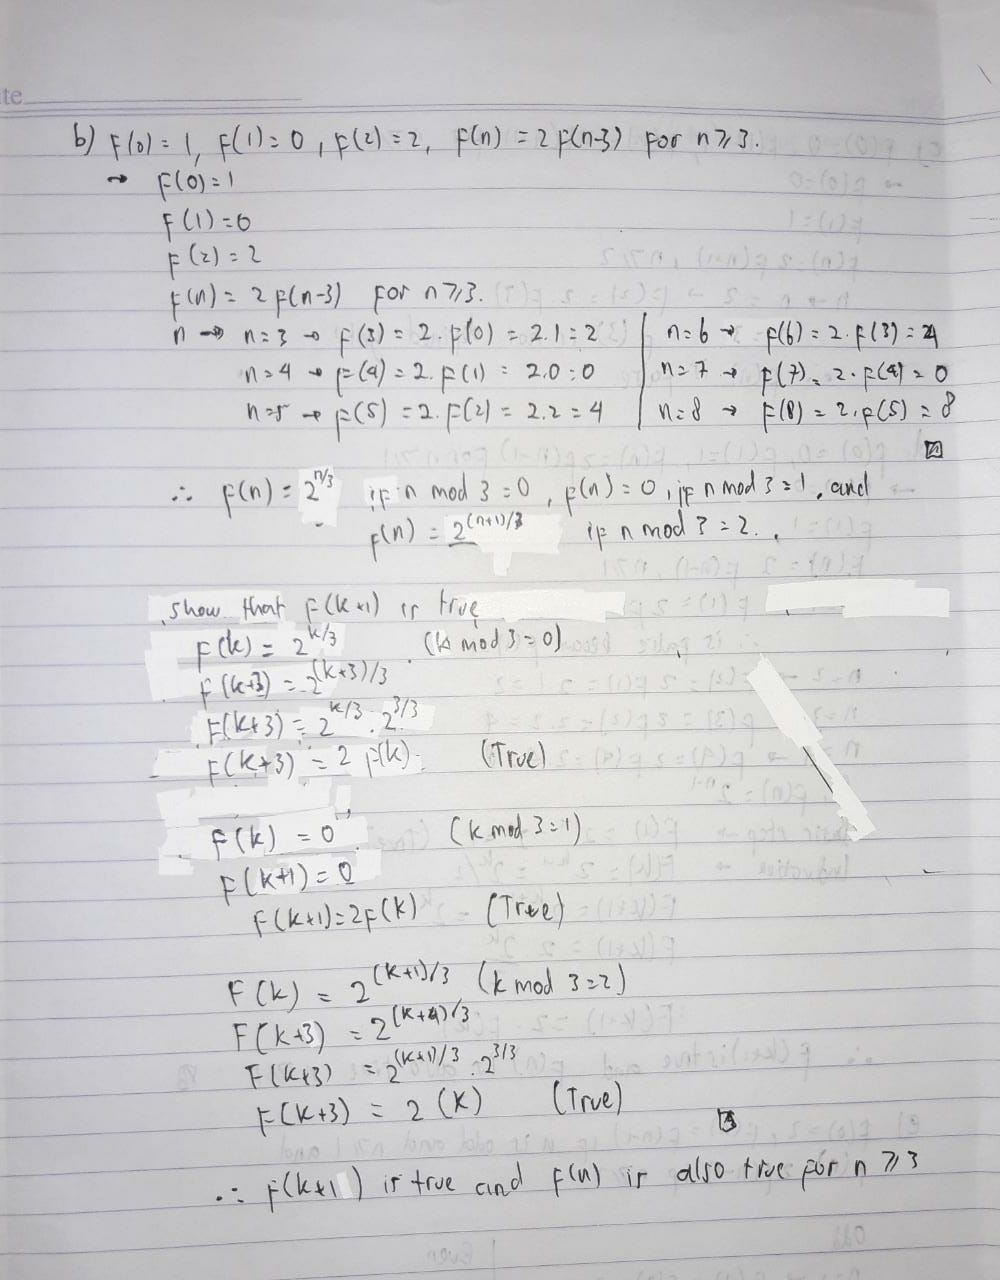 te
b) F(0) = 1, F(1) = 0, F(2) = 2, F(n) = 2 F(n-3) for n ≥ 3.
→ F(0) = 1
F(1) = 0
F(2) = 2
F(n) = 2 F(n-3) for n ≥ 3.
n → n=3 → F(3) = 2. F(0) = 2.1 = 2 | n=6 → F(6) = 2. F(3) = 4
n=4 → F(4) = 2. F(1) = 2.0 = 0 | n=7 → F(7) = 2. F(4) = 0
n=5 → F(5) = 2. F(2) = 2.2 = 4 | n=8 → F(8) = 2. F(5) = 8
∴ F(n) = 2^(n/3) if n mod 3 = 0, F(n) = 0, if n mod 3 = 1, and
F(n) = 2^((n+1)/3) if n mod 3 = 2.
show that F(k+1) is true
F(k) = 2^(k/3) (k mod 3 = 0)
F(k+3) = 2^((k+3)/3)
F(k+3) = 2^(k/3) . 2^(3/3)
F(k+3) = 2 F(k) (True)
F(k) = 0 (k mod 3 = 1)
F(k+1) = 0
F(k+1) = 2F(k) (True)
F(k) = 2^((k+1)/3) (k mod 3 = 2)
F(k+3) = 2^((k+4)/3)
F(k+3) = 2^((k+1)/3) . 2^(3/3)
F(k+3) = 2 (k) (True)
∴ F(k+1) is true and F(n) is also true for n ≥ 3